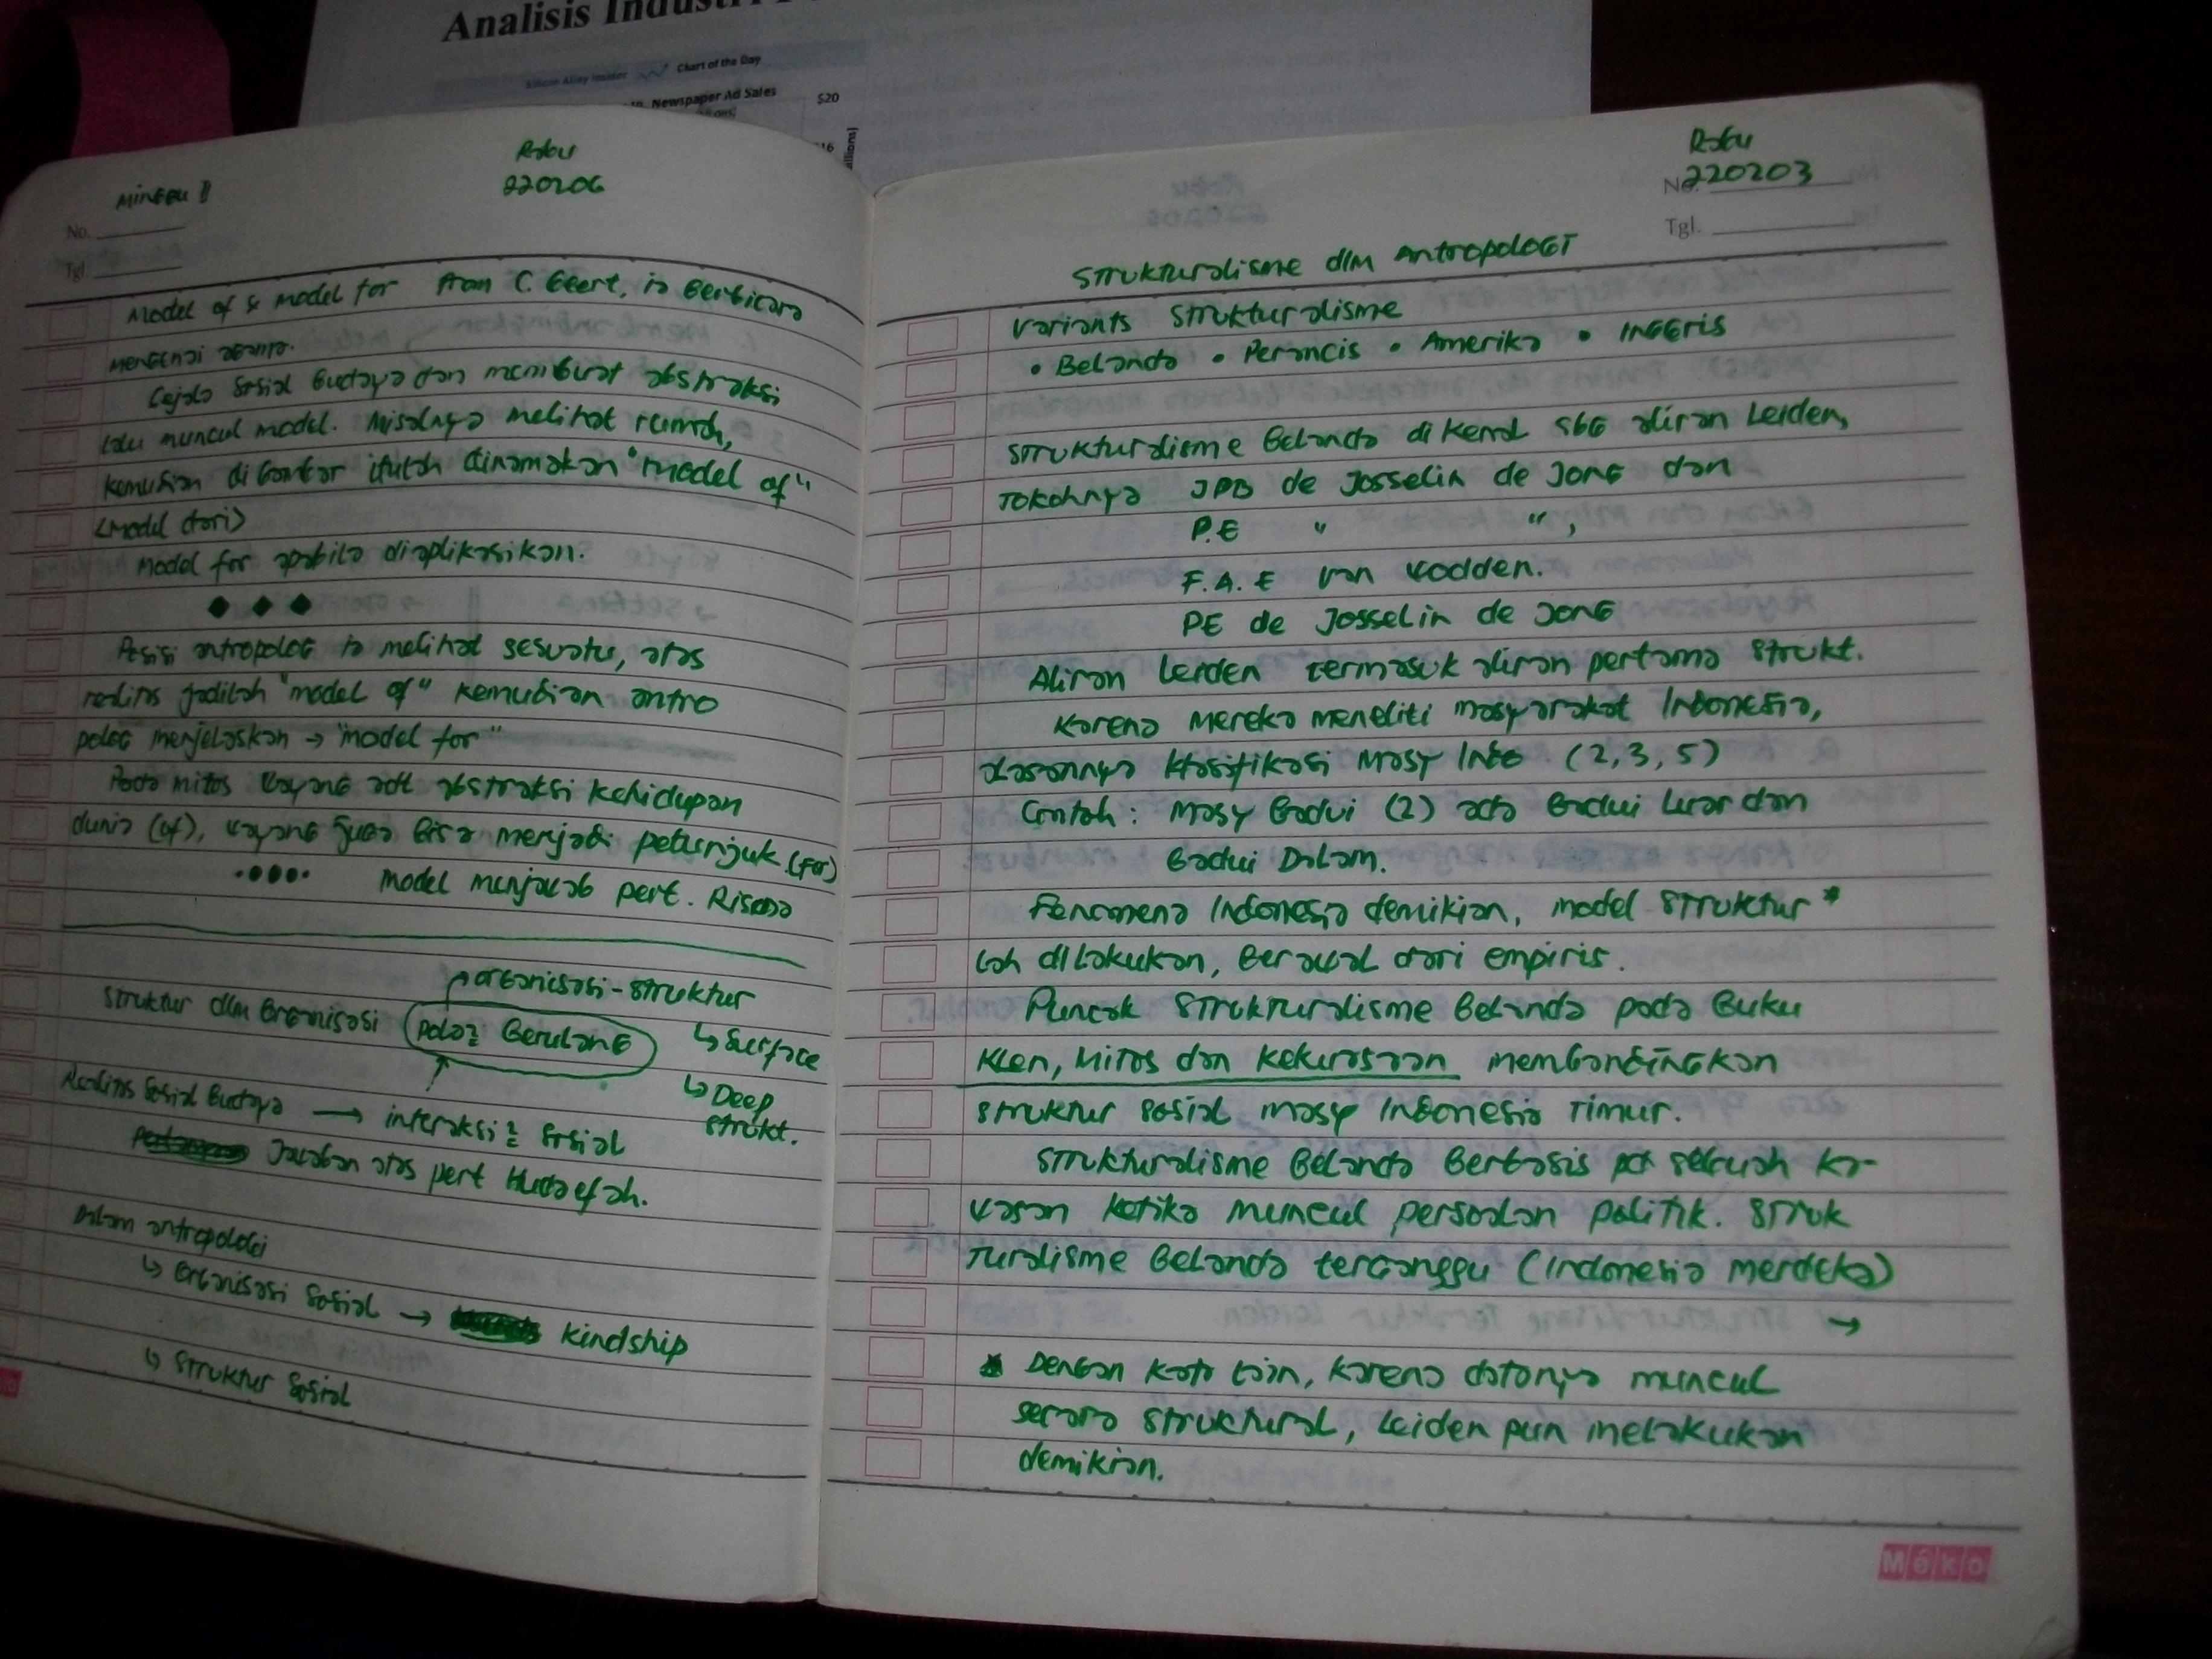 Analisis Industri
Silicon Alley Insider Chart of the Day
Newspaper Ad Sales
$20
Minggu
Rabu
220206
No.
Tgl.
Model of & model for from C. Geert, ia berbicara
mengenai agama.
Gejala sosial budaya dan membuat abstraksi
lalu muncul model. Misalnya melihat rumah,
kemudian digambar itulah dinamakan "model of"
<model dari>
Model for apabila diaplikasikan.
Posisi antropolog ia melihat sesuatu, atas
realitas jadilah "model of" kemudian antro
polog menjelaskan → "model for"
Pada mitos wayang adl abstraksi kehidupan
dunia (of), wayang juga bisa menjadi petunjuk (for)
Model menjawab pert. Risana
organisasi - struktur
Struktur dlm organisasi pola2 berulang
↳ Surface
↳ Deep
strukt.
Realitas sosial budaya → interaksi2 sosial
Jawaban atas pert Hudaefah.
Dalam antropologi
↳ organisasi sosial → kindship
↳ struktur sosial
Rabu
No. 220203
Tgl.
Strukturalisme dlm antropologi
Variants strukturalisme
• Belanda • Perancis • Amerika • Inggris
Strukturalisme Belanda dikenal sbg aliran Leiden,
Tokohnya JPB de Josselin de Jong dan
P.E " ",
F.A.E van Wodden.
PE de Josselin de Jong
Aliran Leiden termasuk aliran pertama strukt.
Karena mereka meneliti masyarakat Indonesia,
alasannya klasifikasi masy Indo (2, 3, 5)
Contoh : Masy Badui (2) ada Badui Luar dan
Badui Dalam.
Fenomena Indonesia demikian, model struktur *
lah dilakukan, berawal dari empiris.
Puncak strukturalisme Belanda pada buku
Klen, Mitos dan Kekuasaan membandingkan
struktur sosial masy Indonesia Timur.
Strukturalisme Belanda berbasis pd sebuah ka-
wasan ketika muncul persoalan politik. Struk
turalisme Belanda terganggu (Indonesia merdeka)
→
* Dengan kata lain, karena datanya muncul
secara struktural, Leiden pun melakukan
demikian.
Méko